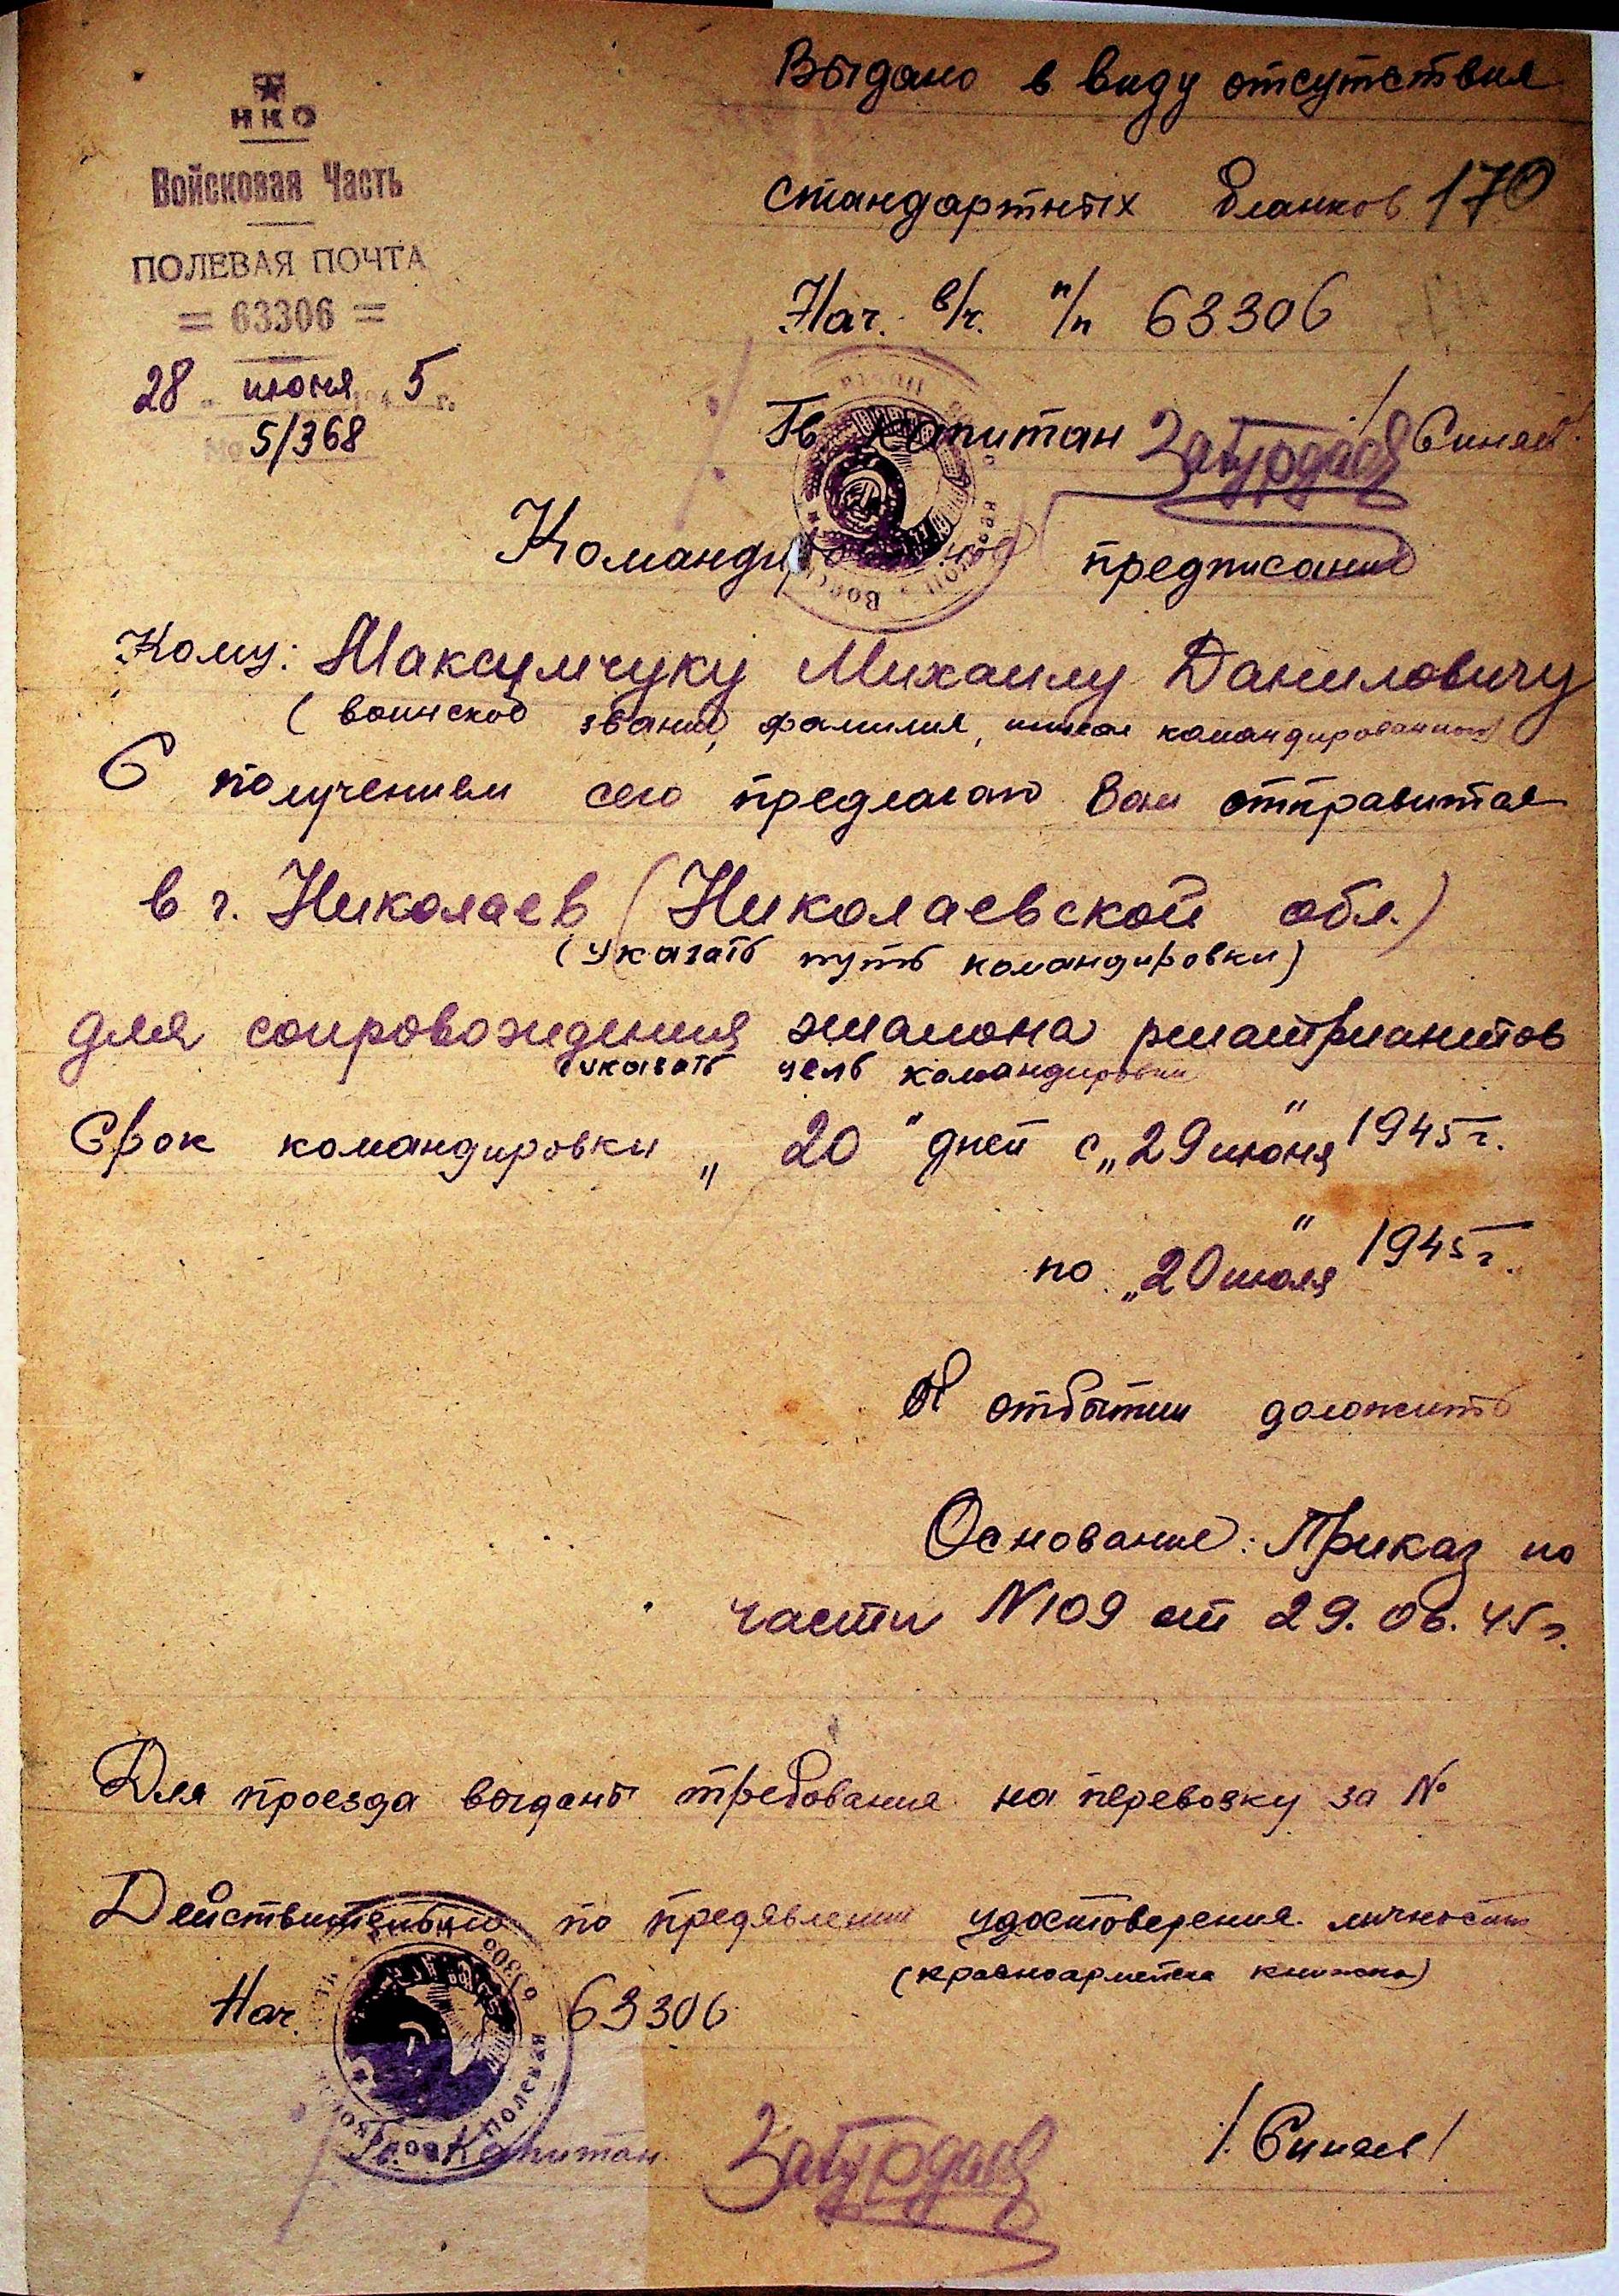 НКО
Войсковая Часть
ПОЛЕВАЯ ПОЧТА
= 63306 =
28 июня 1945 г.
№ 5/368
Выдано в виду отсутствия
стандартных бланков 170
Нач. в/ч. п/п 63306
Гв капитан /Синяев
Командировочное предписание
Кому: Максимчуку Михаилу Даниловичу
(воинское звание, фамилия, командированного)
С получением сего предлагаю Вам отправится
в г. Николаев (Николаевской обл.)
(указать путь командировки)
для сопровождения эшалона репатриантов
(указать цель командировки
Срок командировки „ 20 " дней с „29 июня" 1945 г.
по „20 июля" 1945 г.
Об отбытии доложить
Основание: Приказ по
части N 109 от 29.06.45 г.
Для проезда выданы требования на перевозку за №
Действительно по предявлении удостоверения личности
(красноармейска книжка)
Нач. 63306
Гв. Капитан /Синяев/